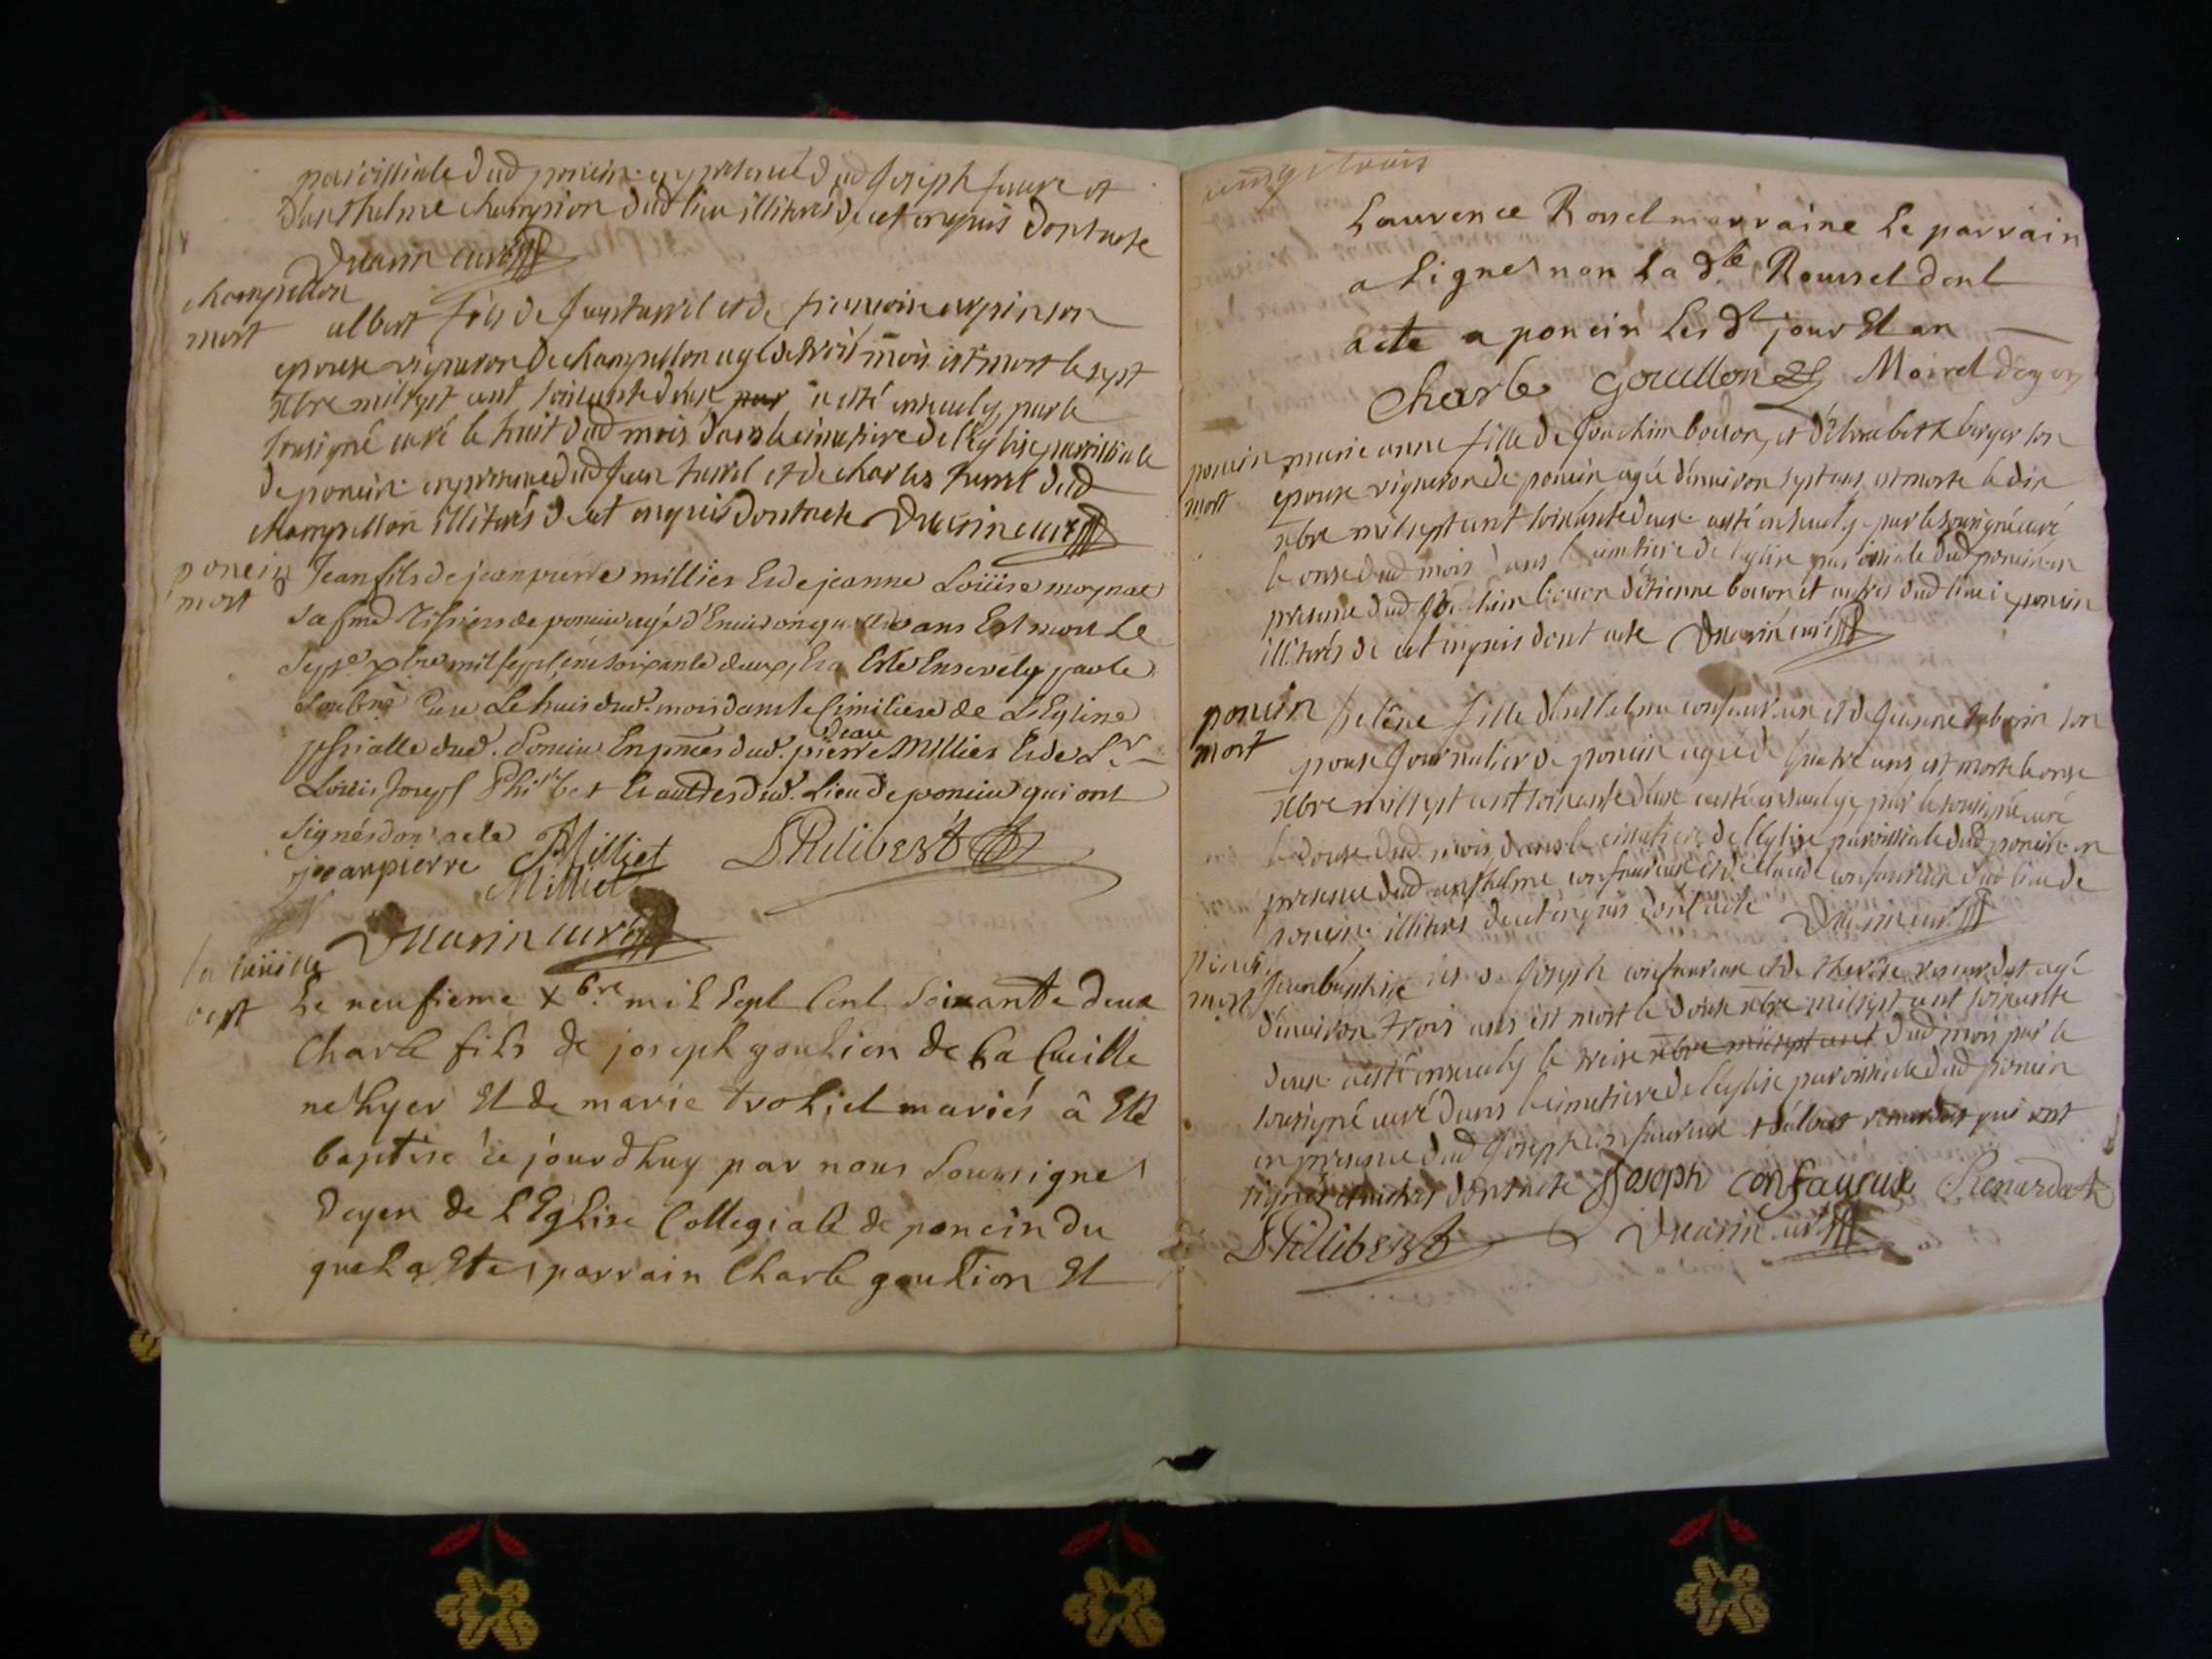 paroissiale dud poncin en presence dud Joseph faure et
danthelme champion dud lieu illiterés de cet enquis dont acte
Duarin curé
champeillon
mort
albert fils de Jean et de francoise son
epouse vigneron de champeillon agé de trois mois est mort le sept
xbre mil sept cent soixante deux par a esté ensevely par le
sousigné curé le huit dud mois dans le cimetiere de l'eglise parroissiale
de poncin en presence dud Jean et de charles dud
champeillon illiterés de cet enquis dont acte Duarin curé
poncin
mort
Jean fils de jean pierre millier Et de jeanne Loüise
sa fme de poncin agé d'Environ ans Est mort Le
sept xbre mil sept cent soixante deux, Et a Esté Ensevely par le
Soubsné Curé Le huit dud. mois dans le Cimitiere de L'Eglise
pssialle dud. Poncin En pnces dud. jean pierre Millier Et de Sr
Louis Joseph Philibert Et autres dud. Lieu de poncin qui ont
signés dont acte
jean pierre Milliet
Milliet
LPhilibert
Duarin curé
la cüeille
bapt
Le neufieme Xbre mil Sept Cent Soixante deux
Charle fils de joseph goulion de La Cueille
ne hyer Et de marie mariés à Eté
baptise ce jourdhuy par nous Soussigne
Doyen de L'Eglise Collegiale de poncin du
quel a Eté parrain Charle goulion Et
vingt trois
Laurence Rossel marraine Le parrain
a Signe non La dlle Roussel dont
acte a poncin Les dt jour Et an
Charle Gouillon Moirel doyen
poncin
mort
marie anne fille de Joachim boccon, et d'Elisabeth berger son
epouse vigneron de poncin agée d'environ sept ans est morte le dix
xbre mil sept cent soixante deux a esté ensevely par le sousigné curé
le onse dud mois dans le cimetiere de l'eglise paroissiale dud poncin en
presence dud Joachim boccon d'étienne boccon et autres dud lieu de poncin
illiterés de cet enquis dont acte Duarin curé
poncin
mort
helêne fille d'anthelme confavreux et de Jeanne son
epouse Journalier de poncin agée de quatre ans est morte le onse
xbre mil sept cent soixante deux a esté ensevelye par le sousigné curé
le douse dud mois dans le cimetiere de l'eglise paroissiale dud poncin en
presence dud anthelme confavreux et de claude confavreux dud lieu de
poncin illiterés de cet enquis dont acte Duarin curé
poncin
mort
Jean baptiste fils de Joseph confavreux et de therêse renardat agé
d'environ trois ans est mort le douse xbre mil sept cent soixante
deux a esté ensevely le treise xbre mil sept cent dud mois par le
sousigné curé dans le cimetiere de l'eglise paroissiale dud poncin
en presence dud Joseph confavreux et d'albert renardat qui ont
signés et autres dont acte Joseph confavreux Renardat
LPhilibert Duarin curé